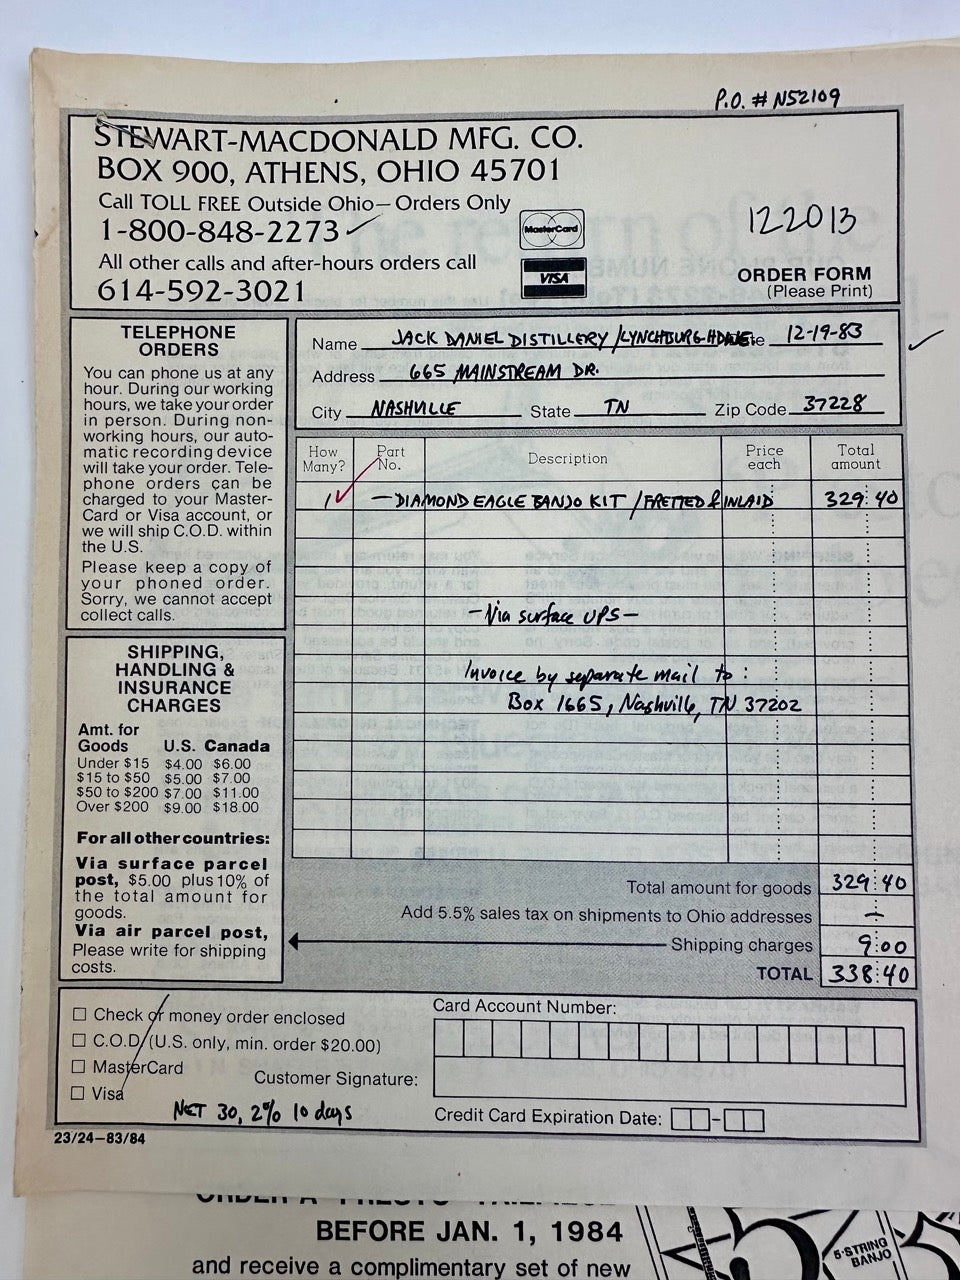 P.O. # N52109
STEWART-MACDONALD MFG. CO.
BOX 900, ATHENS, OHIO 45701
Call TOLL FREE Outside Ohio—Orders Only
1-800-848-2273
All other calls and after-hours orders call
614-592-3021
MasterCard
VISA
122013
ORDER FORM
(Please Print)
TELEPHONE
ORDERS
You can phone us at any
hour. During our working
hours, we take your order
in person. During non-
working hours, our auto-
matic recording device
will take your order. Tele-
phone orders can be
charged to your Master-
Card or Visa account, or
we will ship C.O.D. within
the U.S.
Please keep a copy of
your phoned order.
Sorry, we cannot accept
collect calls.
Name JACK DANIEL DISTILLERY / LYNCHBURG HDWE. 12-19-83
Address 665 MAINSTREAM DR.
City NASHVILLE State TN Zip Code 37228
How Many? Part No. Description Price each Total amount
1 — DIAMOND EAGLE BANJO KIT / FRETTED & INLAID 329 40
- Via surface UPS -
Invoice by separate mail to :
Box 1665, Nashville, TN 37202
SHIPPING,
HANDLING &
INSURANCE
CHARGES
Amt. for
Goods U.S. Canada
Under $15 $4.00 $6.00
$15 to $50 $5.00 $7.00
$50 to $200 $7.00 $11.00
Over $200 $9.00 $18.00
For all other countries:
Via surface parcel
post, $5.00 plus 10% of
the total amount for
goods.
Via air parcel post,
Please write for shipping
costs.
Total amount for goods 329 40
Add 5.5% sales tax on shipments to Ohio addresses —
Shipping charges 9 00
TOTAL 338 40
Check or money order enclosed
C.O.D. (U.S. only, min. order $20.00)
MasterCard
Visa
NET 30, 2% 10 days
Card Account Number:
Customer Signature:
Credit Card Expiration Date:
23/24—83/84
BEFORE JAN. 1, 1984
and receive a complimentary set of new
5-STRING
BANJO